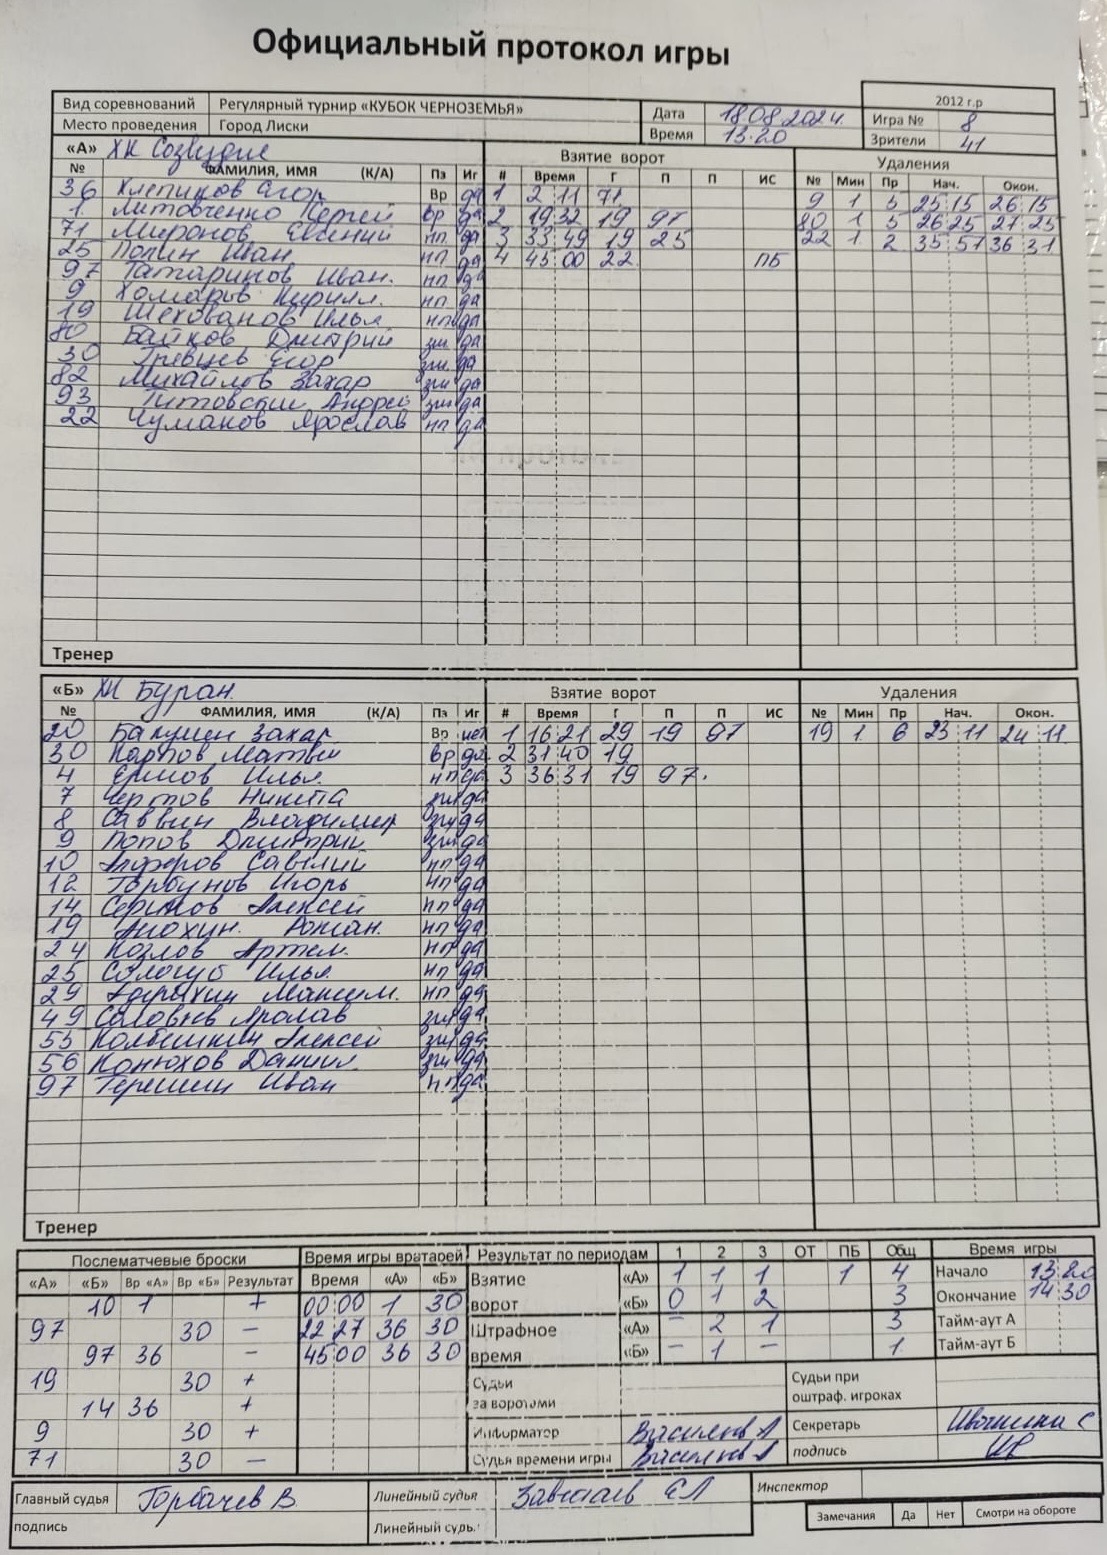 Официальный протокол игры
2012 г.р
Вид соревнований Регулярный турнир «КУБОК ЧЕРНОЗЕМЬЯ» Дата 18.08.2024г. Игра № 8
Место проведения Город Лиски Время 13.20 Зрители 41
«А» ХК Созвездие Взятие ворот Удаления
№ ФАМИЛИЯ, ИМЯ (К/А) Пз Иг # Время Г П П ИС № Мин Пр Нач. Окон.
36 Хлепиков Егор Вр да 1 2 11 71 9 1 5 25 15 26 15
1 Литовченко Вр да 2 19 32 19 97 80 1 5 26 25 27 25
71 Миронов Евгений нп да 3 33 49 19 25 22 1 2 35 57 36 31
25 Попин Иван нп да 4 45 00 22 ПБ
97 Татаринов Иван. нп да
9 Хомаров Кирилл. нп да
19 Шехованов Илья нп да
80 Байков Дмитрий зщ да
30 Гревцев Егор зщ да
82 Михайлов Захар зщ да
93 Титовский Андрей зщ да
22 Чуманов Ярослав нп да
Тренер
«Б» ХК Буран. Взятие ворот Удаления
№ ФАМИЛИЯ, ИМЯ (К/А) Пз Иг # Время Г П П ИС № Мин Пр Нач. Окон.
20 Захар Вр нет 1 16 21 29 19 97 19 1 6 23 11 24 11
30 Карпов Матвей Вр да 2 31 40 19
4 Ермов Илья нп да 3 36 31 19 97.
7 Чертов Никита да
8 Саввин Владимир зщ да
9 Попов Дмитрий зщ да
10 Савелий нп да
12 Горбунов Игорь нп да
14 Алексей нп да
19 Анохин. Роман. нп да
24 Козлов Артем. нп да
25 Сологуб Илья нп да
29 Максим. нп да
49 Соловьев зщ да
55 Алексей зщ да
56 Конюхов Даниил зщ да
97 Терешин Иван нп да
Тренер
Послематчевые броски Время игры вратарей Результат по периодам 1 2 3 ОТ ПБ Общ Время игры
«А» «Б» Вр «А» Вр «Б» Результат Время «А» «Б» Взятие «А» 1 1 1 1 4 Начало 13 20
10 1 + 00 00 1 30 ворот «Б» 0 1 2 3 Окончание 14 30
97 30 − 22 27 36 30 Штрафное «А» − 2 1 3 Тайм-аут А
97 36 − 45 00 36 30 время «Б» − 1 − 1 Тайм-аут Б
19 30 + Судьи Судьи при
14 36 + за воротами оштраф. игроках
9 30 + Информатор Василенко А Секретарь
71 30 − Судья времени игры Василенко А подпись
Главный судья Горбачев В. Линейный судья ЕЛ Инспектор
подпись Линейный судья Замечания Да Нет Смотри на обороте